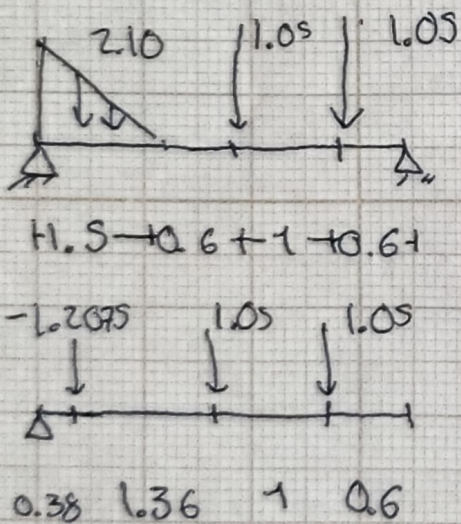 2.10 1.05 1.05
1.5 0.6 1 0.6
-1.2075 1.05 1.05
0.38 1.36 1 0.6